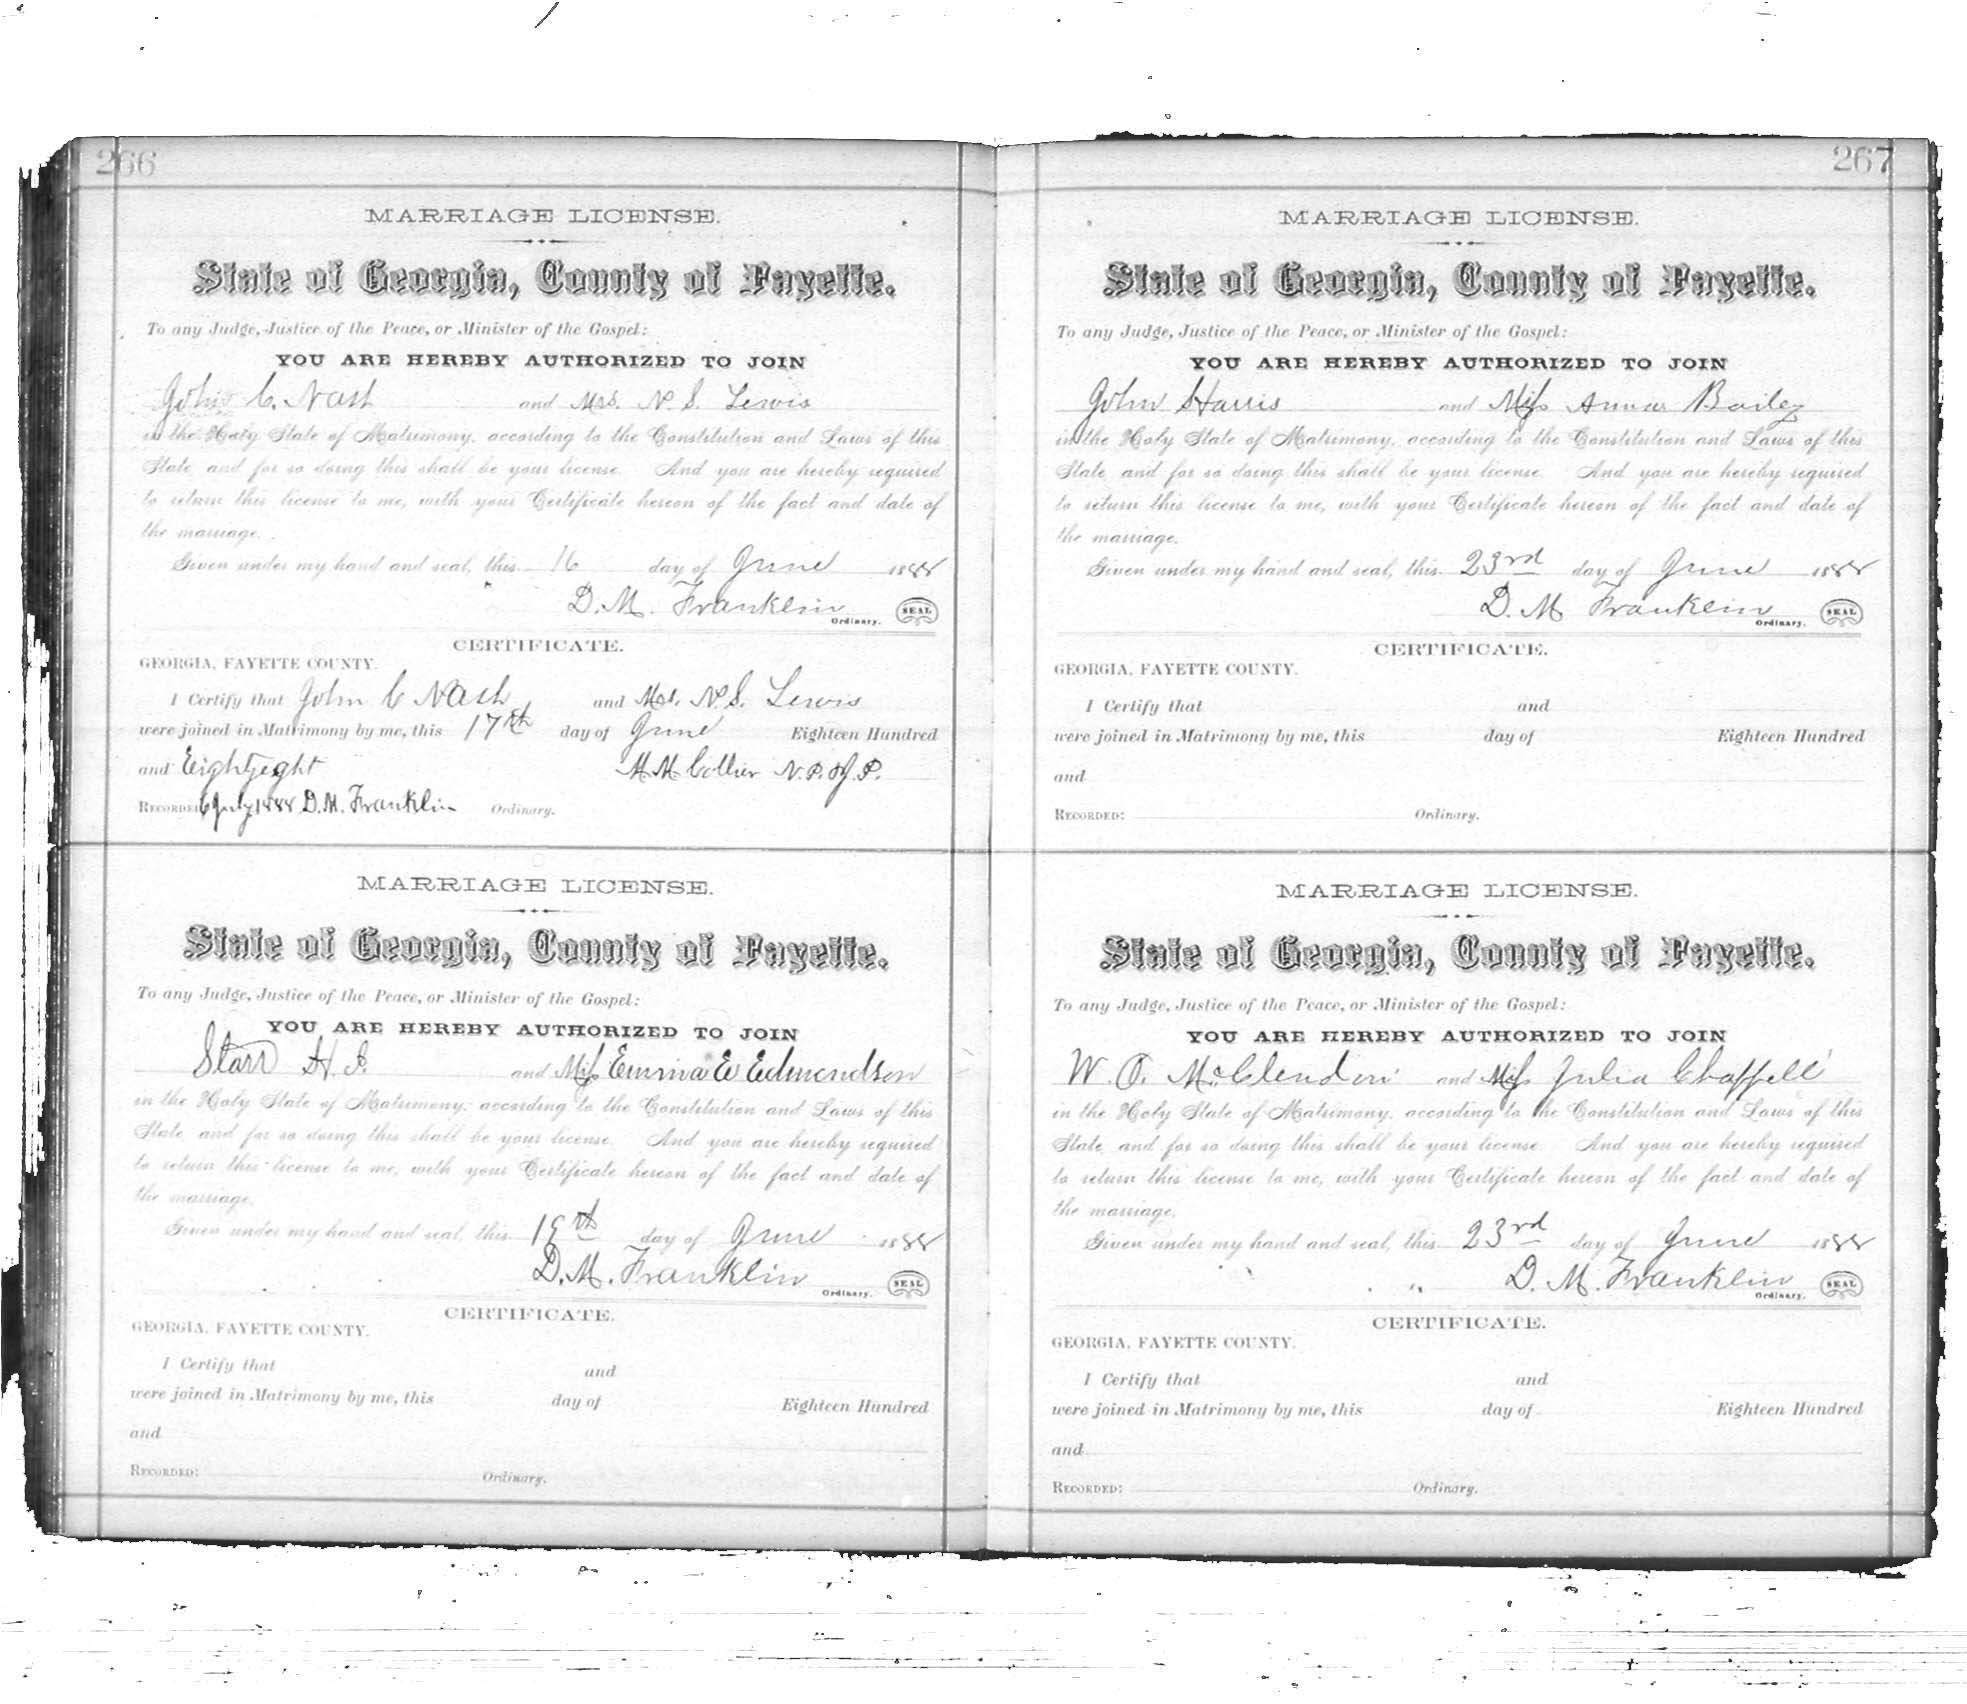 266
MARRIAGE LICENSE.
State of Georgia, County of Fayette.
To any Judge, Justice of the Peace, or Minister of the Gospel:
YOU ARE HEREBY AUTHORIZED TO JOIN
John C. Nash and Mrs. N. S. Lewis
in the Holy State of Matrimony, according to the Constitution and Laws of this
State, and for so doing this shall be your license. And you are hereby required
to return this license to me, with your Certificate hereon of the fact and date of
the marriage.
Given under my hand and seal, this 16 day of June 1888
D. M. Franklin SEAL
Ordinary.
CERTIFICATE.
GEORGIA, FAYETTE COUNTY.
I Certify that John C Nash and Mrs. N. S. Lewis
were joined in Matrimony by me, this 17th day of June Eighteen Hundred
and Eightyeght M. M. Collier N. P. & J. P.
RECORDED: 6 July 1888 D. M. Franklin Ordinary.
MARRIAGE LICENSE.
State of Georgia, County of Fayette.
To any Judge, Justice of the Peace, or Minister of the Gospel:
YOU ARE HEREBY AUTHORIZED TO JOIN
Starr H. I. and Miss Emma E Edmondson
in the Holy State of Matrimony, according to the Constitution and Laws of this
State, and for so doing this shall be your license. And you are hereby required
to return this license to me, with your Certificate hereon of the fact and date of
the marriage.
Given under my hand and seal, this 19th day of June 1888
D. M. Franklin SEAL
Ordinary.
CERTIFICATE.
GEORGIA, FAYETTE COUNTY.
I Certify that and
were joined in Matrimony by me, this day of Eighteen Hundred
and
RECORDED: Ordinary.
267
MARRIAGE LICENSE.
State of Georgia, County of Fayette.
To any Judge, Justice of the Peace, or Minister of the Gospel:
YOU ARE HEREBY AUTHORIZED TO JOIN
John Starris and Miss Anna Bailey
in the Holy State of Matrimony, according to the Constitution and Laws of this
State, and for so doing this shall be your license. And you are hereby required
to return this license to me, with your Certificate hereon of the fact and date of
the marriage.
Given under my hand and seal, this 23rd day of June 1888
D. M Franklin SEAL
Ordinary.
CERTIFICATE.
GEORGIA, FAYETTE COUNTY.
I Certify that and
were joined in Matrimony by me, this day of Eighteen Hundred
and
RECORDED: Ordinary.
MARRIAGE LICENSE.
State of Georgia, County of Fayette.
To any Judge, Justice of the Peace, or Minister of the Gospel:
YOU ARE HEREBY AUTHORIZED TO JOIN
W. O. McClendon and Miss Julia Chappell
in the Holy State of Matrimony, according to the Constitution and Laws of this
State, and for so doing this shall be your license. And you are hereby required
to return this license to me, with your Certificate hereon of the fact and date of
the marriage.
Given under my hand and seal, this 23rd day of June 1888
D. M. Franklin SEAL
Ordinary.
CERTIFICATE.
GEORGIA, FAYETTE COUNTY.
I Certify that and
were joined in Matrimony by me, this day of Eighteen Hundred
and
RECORDED: Ordinary.